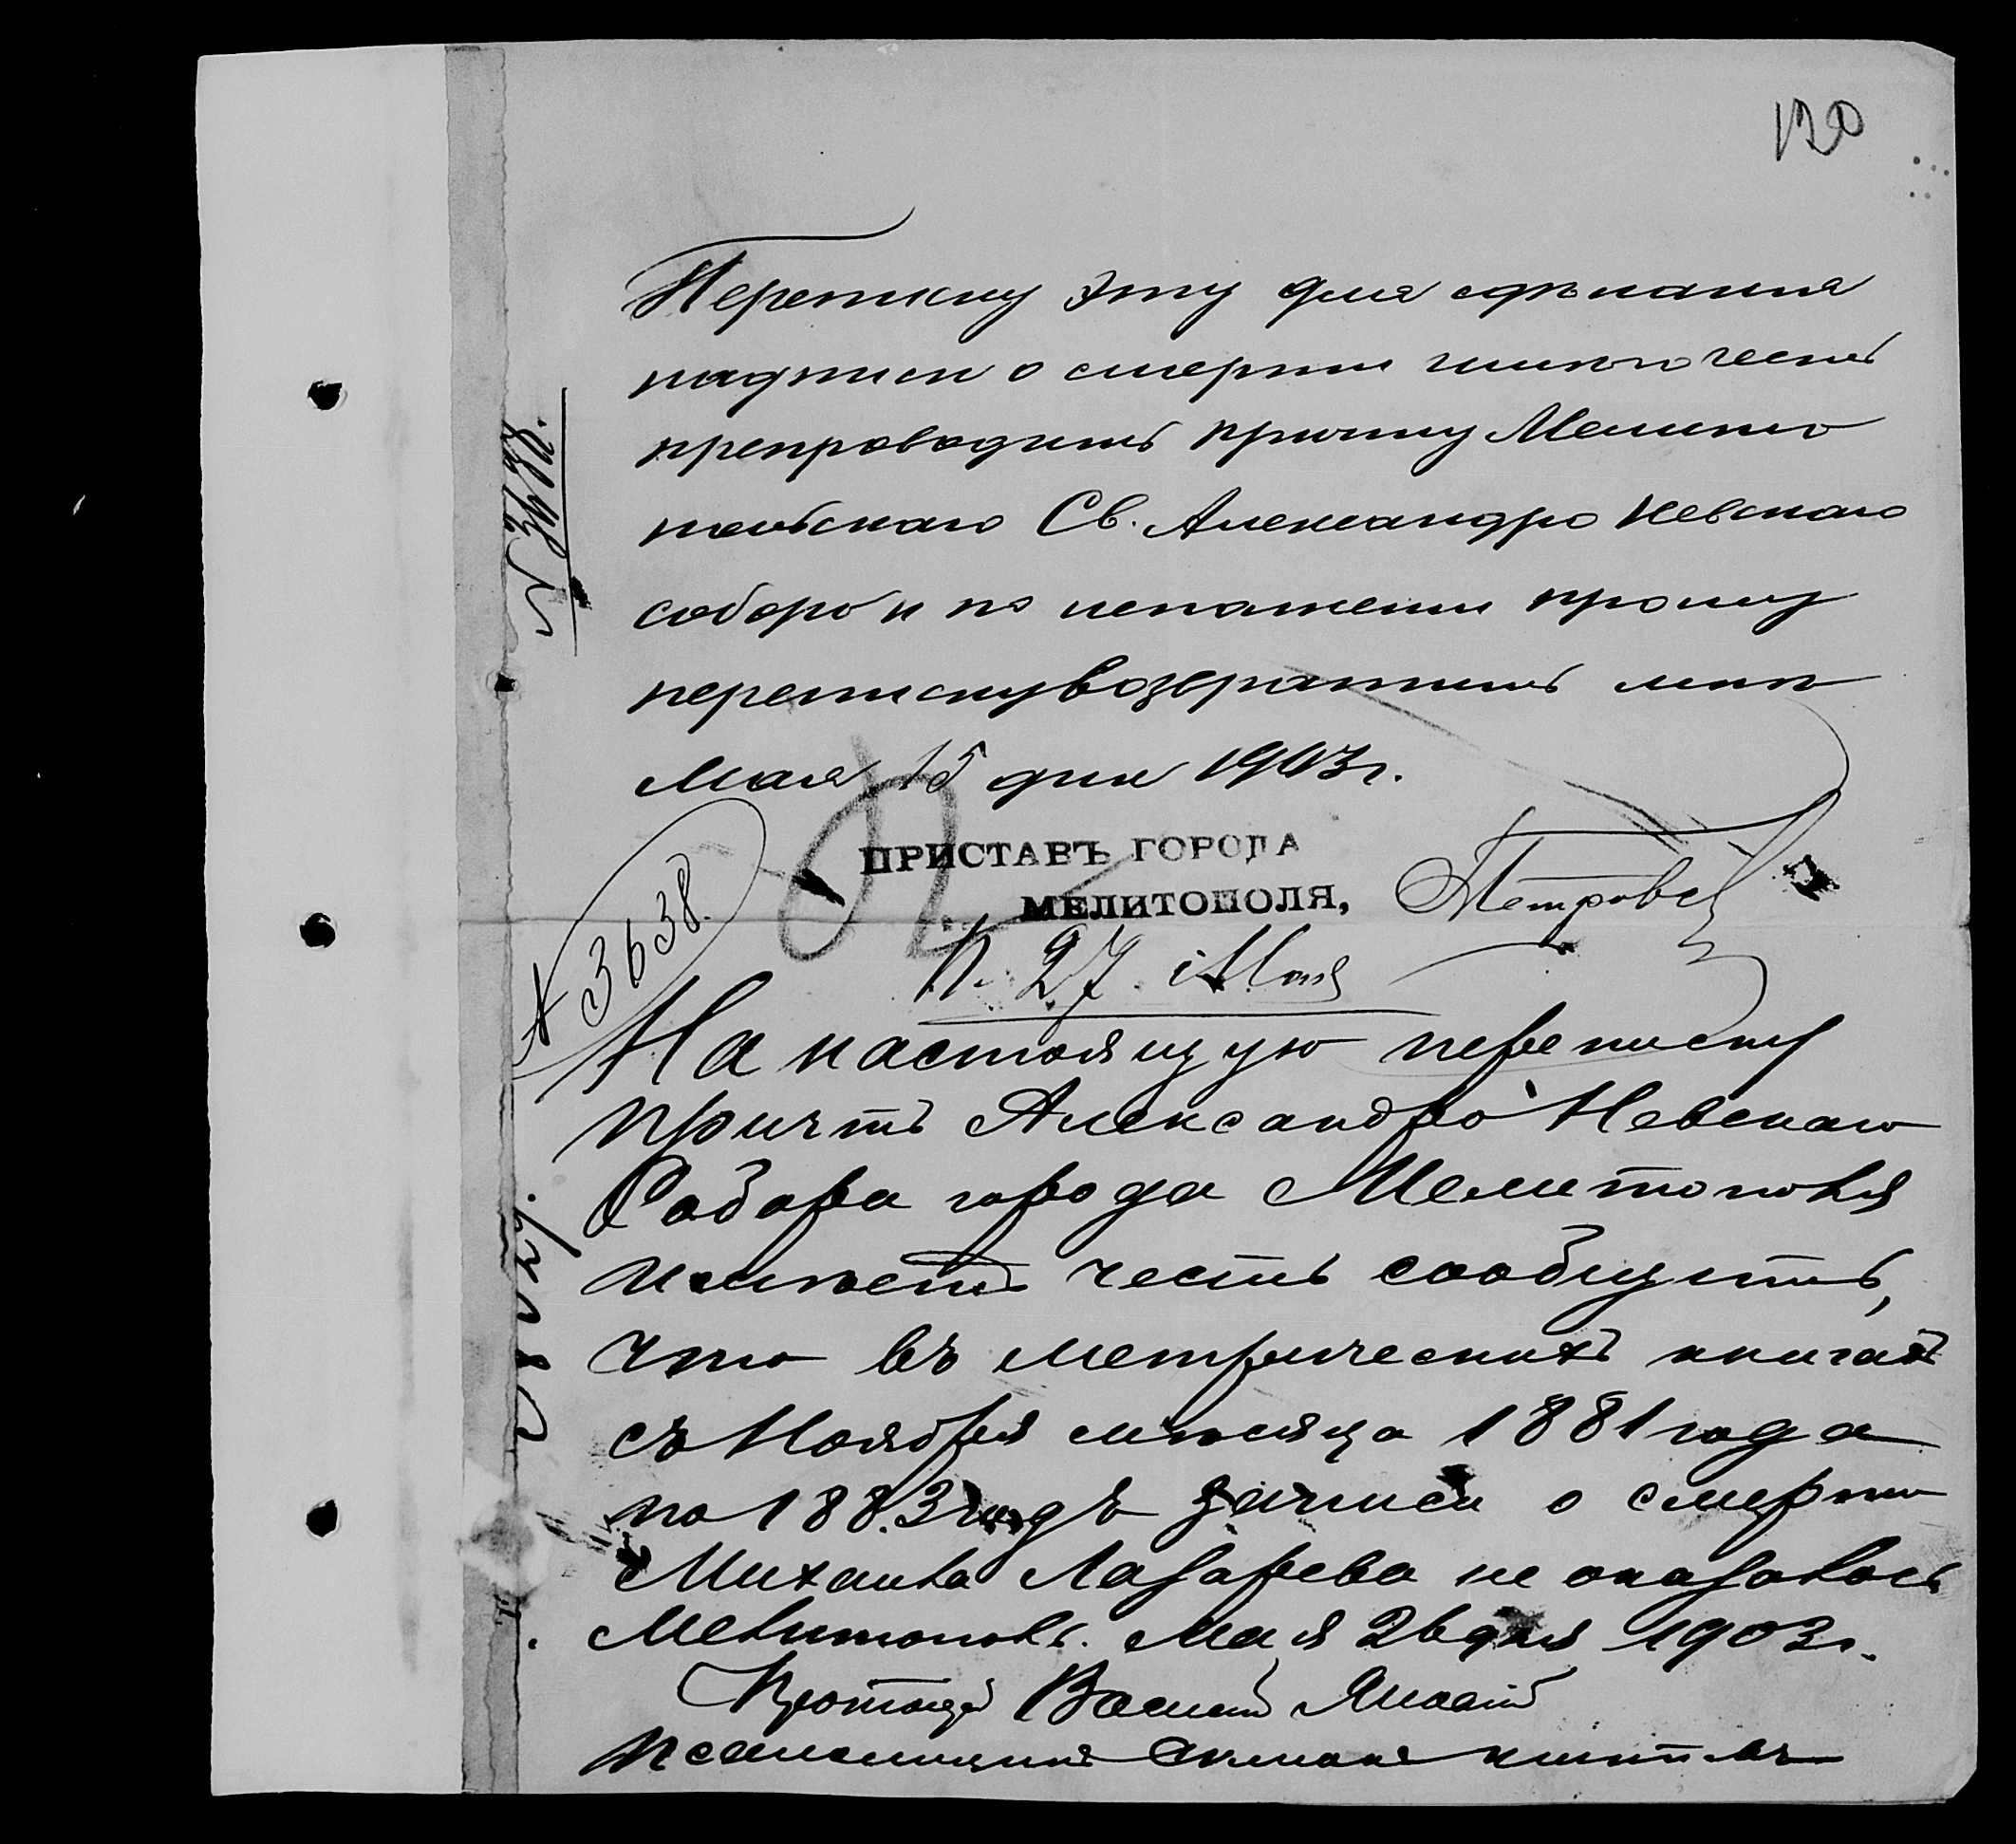 120
Переписку эту для сдѣланія
надписи о смерти имѣю честь
препроводить причту Мелито
польскаго Св. Александро Невскаго
собора и по исполненіи прошу
переписку возвратить мнѣ
Мая 15 дня 1903 г.
№ 3418.
ПРИСТАВЪ ГОРОДА
МЕЛИТОПОЛЯ,
Петровъ
№ 3638.
П. 27 Мая
На настоящую переписку
Причтъ Александро Невскаго
Собора города Мелитополя
имѣетъ честь сообщить,
что въ метрическихъ книгахъ
съ Ноября мѣсяца 1881 года
по 1883 годъ записи о смерти
Михаила Лазарева не оказалось
Мелитополь. Мая 26 дня 1903 г.
Протоіерей Василій
Псаломщикъ